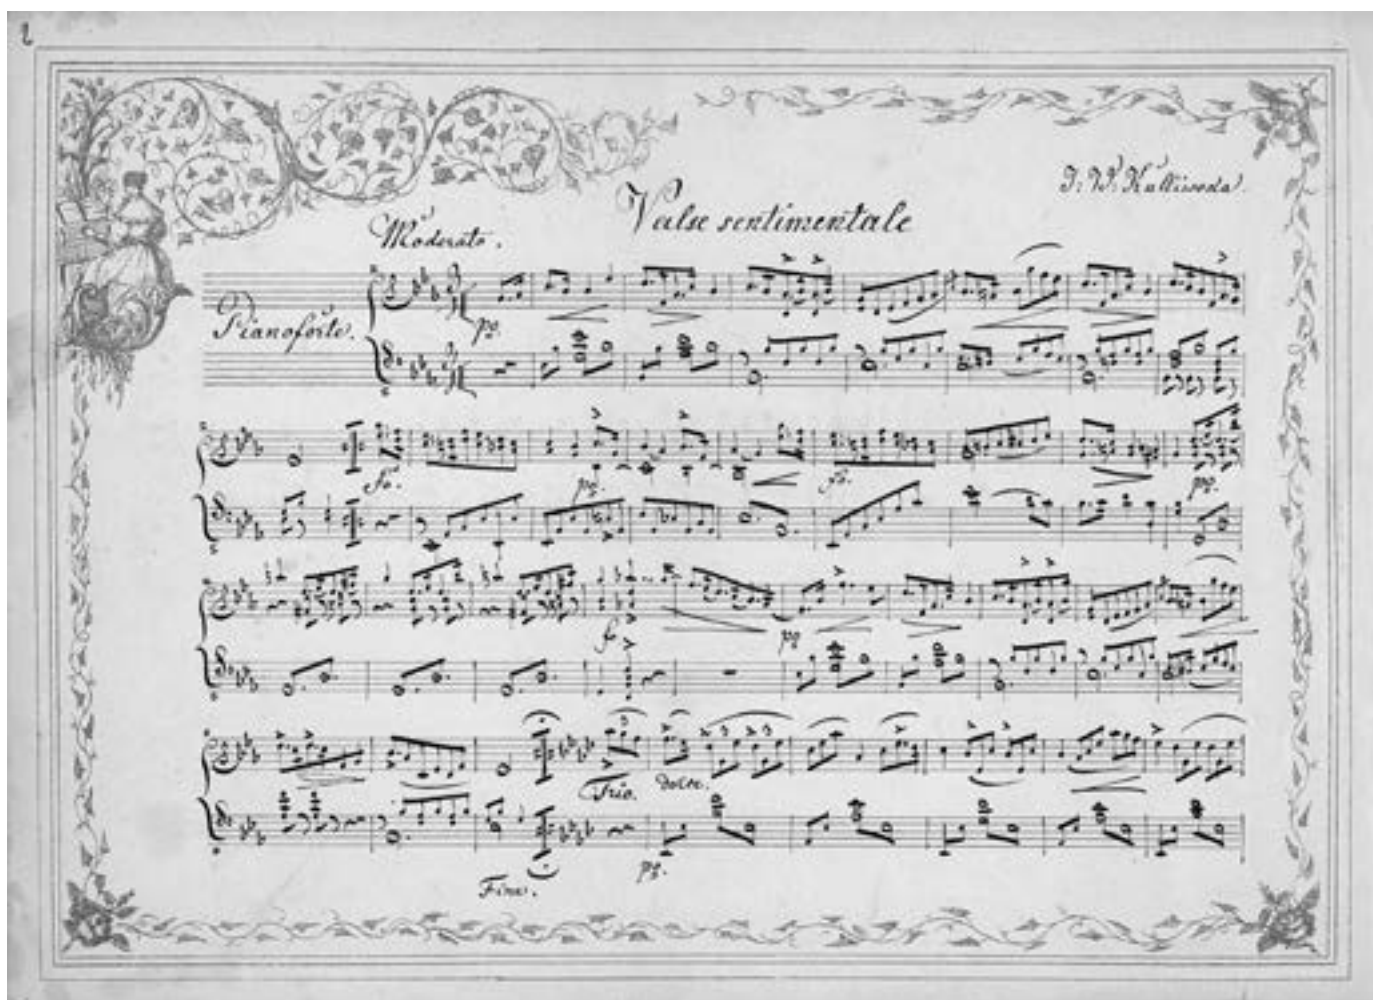 J: W: Kalliwoda.
Valse sentimentale
Moderato.
Pianoforte.
pp.
fo.
pp.
fo.
pp.
fo
pp
3
3
3
Trio.
dolce.
pp.
Fine.